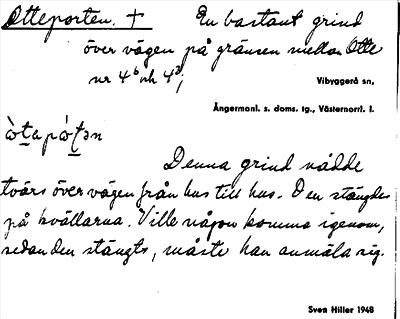 Otteporten. + En bastant grind
över vägen på gränsen mellan Otte
nr 4ᵇ och 4ᵈ;
Vibyggerå sn,
Ångermanl. s. doms. tg., Västernorrl. l.
Denna grind nådde
tvärs över vägen från hus till hus. Den stängdes
på kvällarna. Ville någon komma igenom,
sedan den stängts, måste han anmäla sig.
Sven Hiller 1948